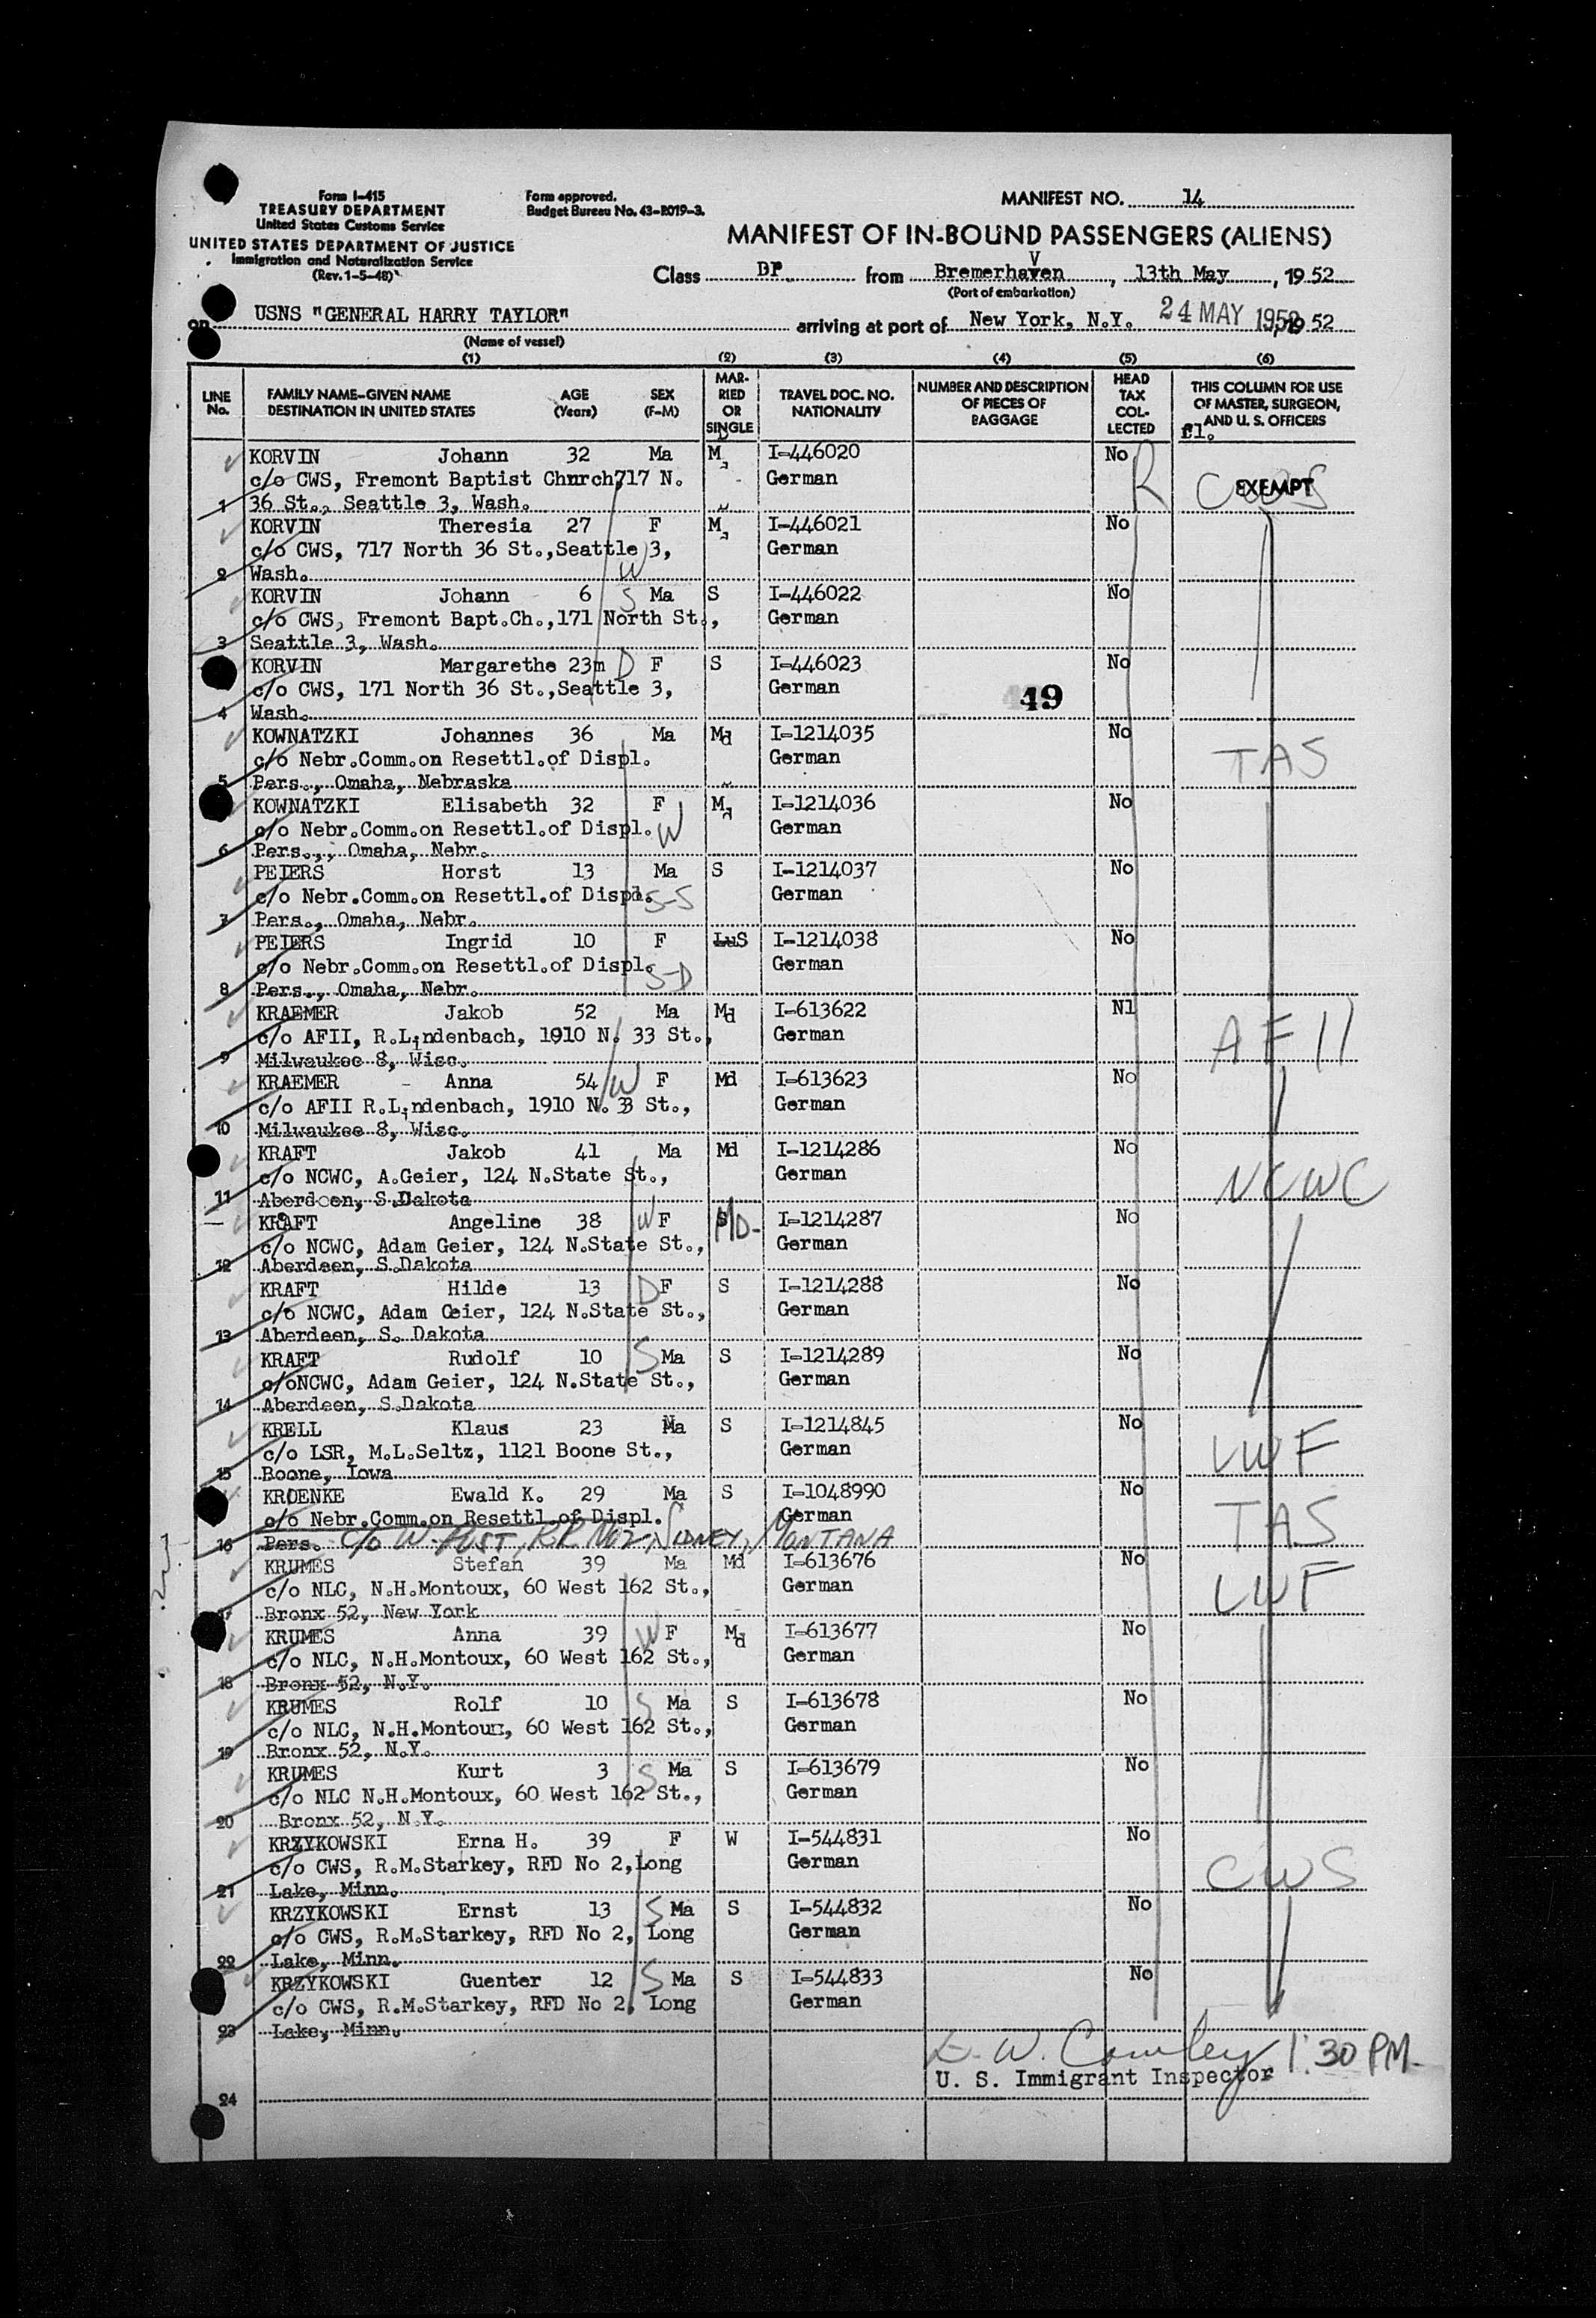 Form I-415
TREASURY DEPARTMENT
United States Customs Service
UNITED STATES DEPARTMENT OF JUSTICE
Immigration and Naturalization Service
(Rev. 1-5-48)
Form approved.
Budget Bureau No. 43-R019-3.
MANIFEST NO. 14
MANIFEST OF IN-BOUND PASSENGERS (ALIENS)
Class DP from Bremerhaven, 13th May, 1952
(Port of embarkation)
on USNS "GENERAL HARRY TAYLOR" arriving at port of New York, N.Y. 24 MAY 1952, 1952
(Name of vessel)
(1) (2) (3) (4) (5) (6)
LINE No. FAMILY NAME-GIVEN NAME DESTINATION IN UNITED STATES AGE (Years) SEX (F-M) MARRIED OR SINGLE TRAVEL DOC. NO. NATIONALITY NUMBER AND DESCRIPTION OF PIECES OF BAGGAGE HEAD TAX COLLECTED THIS COLUMN FOR USE OF MASTER, SURGEON, AND U. S. OFFICERS
KORVIN Johann 32 Ma Md I-446020 No R CWS EXEMPT
c/o CWS, Fremont Baptist Church, 717 N. German
1 36 St., Seattle 3, Wash.
KORVIN Theresia 27 F Md I-446021 No
c/o CWS, 717 North 36 St., Seattle 3, German
2 Wash. W
KORVIN Johann 6 S Ma S I-446022 No
c/o CWS, Fremont Bapt.Ch.,171 North St., German
3 Seattle 3, Wash.
KORVIN Margarethe 23m D F S I-446023 No
c/o CWS, 171 North 36 St., Seattle 3, German 49
4 Wash.
KOWNATZKI Johannes 36 Ma Md I-1214035 No TAS
c/o Nebr.Comm.on Resettl.of Displ. German
5 Pers., Omaha, Nebraska
KOWNATZKI Elisabeth 32 F Md I-1214036 No
c/o Nebr.Comm.on Resettl.of Displ. W German
6 Pers., Omaha, Nebr.
PEIERS Horst 13 Ma S I-1214037 No
c/o Nebr.Comm.on Resettl.of Displ. S-S German
7 Pers., Omaha, Nebr.
PEIERS Ingrid 10 F S I-1214038 No
c/o Nebr.Comm.on Resettl.of Displ. S-D German
8 Pers., Omaha, Nebr.
KRAEMER Jakob 52 Ma Md I-613622 Nl AFII
c/o AFII, R.Lindenbach, 1910 N. 33 St., German
9 Milwaukee 8, Wisc.
KRAEMER - Anna 54 W F Md I-613623 No
c/o AFII R.Lindenbach, 1910 N. 33 St., German
10 Milwaukee 8, Wisc.
KRAFT Jakob 41 Ma Md I-1214286 No NCWC
c/o NCWC, A.Geier, 124 N.State St., German
11 Aberdeen, S.Dakota
KRAFT Angeline 38 W F MD- I-1214287 No
c/o NCWC, Adam Geier, 124 N.State St., German
12 Aberdeen, S.Dakota
KRAFT Hilde 13 D F S I-1214288 No
c/o NCWC, Adam Geier, 124 N.State St., German
13 Aberdeen, S. Dakota
KRAFT Rudolf 10 S Ma S I-1214289 No
c/oNCWC, Adam Geier, 124 N.State St., German
14 Aberdeen, S.Dakota
KRELL Klaus 23 Ma S I-1214845 No LWF
c/o LSR, M.L.Seltz, 1121 Boone St., German
15 Boone, Iowa
KROENKE Ewald K. 29 Ma S I-1048990 No TAS
c/o Nebr.Comm.on Resettl.of Displ. German
16 Pers. c/o W. PUST, R.R. No 2, SIDNEY, MONTANA
KRUMES Stefan 39 Ma Md I-613676 No LWF
c/o NLC, N.H.Montoux, 60 West 162 St., German
17 Bronx 52, New York
KRUMES Anna 39 W F Md I-613677 No
c/o NLC, N.H.Montoux, 60 West 162 St., German
18 Bronx 52, N.Y.
KRUMES Rolf 10 S Ma S I-613678 No
c/o NLC, N.H.Montoux, 60 West 162 St., German
19 Bronx 52, N.Y.
KRUMES Kurt 3 S Ma S I-613679 No
c/o NLC N.H.Montoux, 60 West 162 St., German
20 Bronx 52, N.Y.
KRZYKOWSKI Erna H. 39 F W I-544831 No CWS
c/o CWS, R.M.Starkey, RFD No 2,Long German
21 Lake, Minn.
KRZYKOWSKI Ernst 13 S Ma S I-544832 No
c/o CWS, R.M.Starkey, RFD No 2, Long German
22 Lake, Minn.
KRZYKOWSKI Guenter 12 S Ma S I-544833 No
c/o CWS, R.M.Starkey, RFD No 2, Long German
23 Lake, Minn.
1:30 PM-
U. S. Immigrant Inspector
24